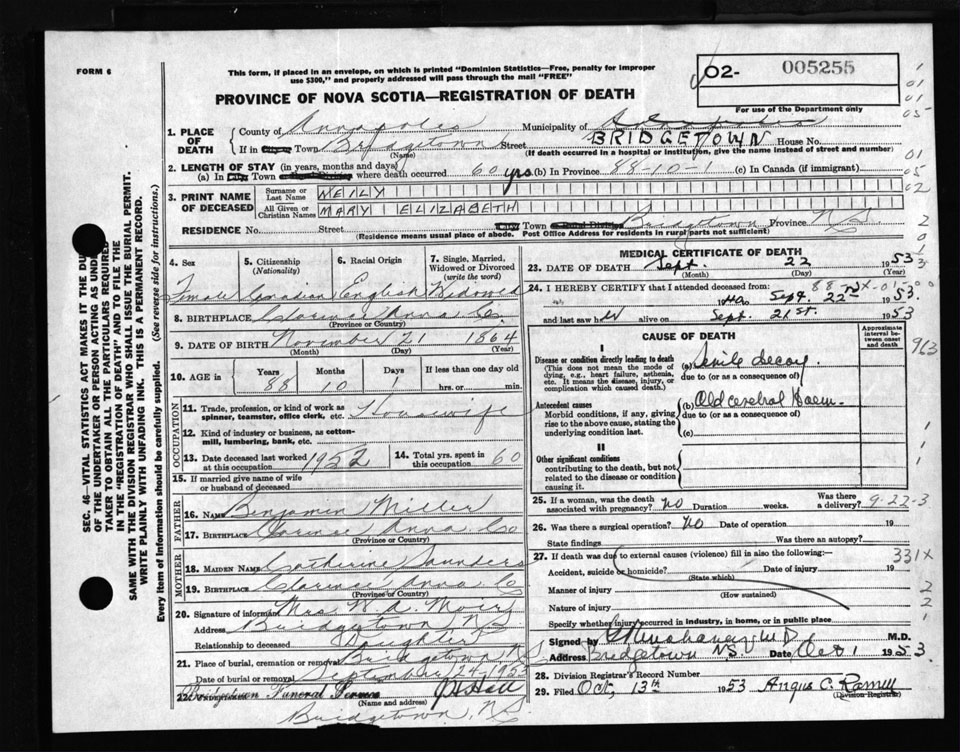 FORM 6
This form, if placed in an envelope, on which is printed "Dominion Statistics—Free, penalty for improper
use $300," and properly addressed will pass through the mail "FREE"
O2- 005255
For use of the Department only
PROVINCE OF NOVA SCOTIA—REGISTRATION OF DEATH
1. PLACE OF DEATH
County of Annapolis Municipality of
If in Town Bridgetown Street BRIDGETOWN House No.
(Name) (If death occurred in a hospital or institution, give the name instead of street and number)
2. LENGTH OF STAY (in years, months and days)
(a) In Town where death occurred 60 yrs (b) In Province 88-10-1 (c) In Canada (if immigrant)
3. PRINT NAME OF DECEASED
Surname or Last Name NEILY
All Given or Christian Names MARY ELIZABETH
RESIDENCE No. Street Town Bridgetown Province N.S.
(Residence means usual place of abode. Post Office Address for residents in rural parts not sufficient)
4. Sex 5. Citizenship (Nationality) 6. Racial Origin 7. Single, Married, Widowed or Divorced (write the word)
Female Canadian English Widowed
8. BIRTHPLACE Clarence Anna Co.
(Province or Country)
9. DATE OF BIRTH November 21 1864
(Month) (Day) (Year)
10. AGE in Years Months Days If less than one day
88 10 1 hrs. or min.
OCCUPATION
11. Trade, profession, or kind of work as spinner, teamster, office clerk, etc. Housewife
12. Kind of industry or business, as cotten-mill, lumbering, bank, etc.
13. Date deceased last worked at this occupation 1952 14. Total yrs. spent in this occupation 60
15. If married give name of wife or husband of deceased
FATHER
16. Name Benjamin Miller
17. Birthplace Clarence Anna Co
(Province or Country)
MOTHER
18. MAIDEN NAME Catherine Saunders
19. BIRTHPLACE Clarence Anna Co
(Province or Country)
20. Signature of informant Mrs W. A. Moir
Address Bridgetown N.S.
Relationship to deceased Daughter
21. Place of burial, cremation or removal Bridgetown N.S.
Date of burial or removal September 24, 1953
22. Undertaker Bridgetown Funeral Service
(Name and address)
Bridgetown, N.S.
MEDICAL CERTIFICATE OF DEATH
23. DATE OF DEATH Sept. 22 1953
(Month) (Day) (Year)
24. I HEREBY CERTIFY that I attended deceased from:
1940 to Sept. 22 1953.
and last saw her alive on Sept. 21st. 1953
CAUSE OF DEATH
Approximate interval between onset and death
I
Disease or condition directly leading to death
(This does not mean the mode of dying, e.g., heart failure, asthenia, etc. It means the disease, injury, or complication which caused death.)
(a) Senile decay.
due to (or as a consequence of)
Antecedent causes
Morbid conditions, if any, giving rise to the above cause, stating the underlying condition last.
(b) Old cerebral Haem.
due to (or as a consequence of)
(c)
II
Other significant conditions
contributing to the death, but not related to the disease or condition causing it.
25. If a woman, was the death associated with pregnancy? no Duration weeks. Was there a delivery?
9-22-3
26. Was there a surgical operation? no Date of operation 19
State findings Was there an autopsy?
27. If death was due to external causes (violence) fill in also the following:
331X
Accident, suicide or homicide? Date of injury 19
(State which)
Manner of injury
(How sustained)
Nature of injury
Specify whether injury occurred in industry, in home, or in public place
Signed by M.D.
Address Bridgetown N.S. Date Oct 1 1953.
28. Division Registrar's Record Number
29. Filed Oct, 13th 1953 Angus C. Ramey
(Division Registrar)
963
SEC. 46—VITAL STATISTICS ACT MAKES IT THE
OF THE UNDERTAKER OR PERSON ACTING AS
TAKER TO OBTAIN ALL THE PARTICULARS REQUIRED
IN THE "REGISTRATION OF DEATH" AND TO FILE THE
SAME WITH THE DIVISION REGISTRAR WHO SHALL ISSUE THE BURIAL PERMIT.
WRITE PLAINLY WITH UNFADING INK. THIS IS A PERMANENT RECORD.
Every item of Information should be carefully supplied. (See reverse side for instructions.)